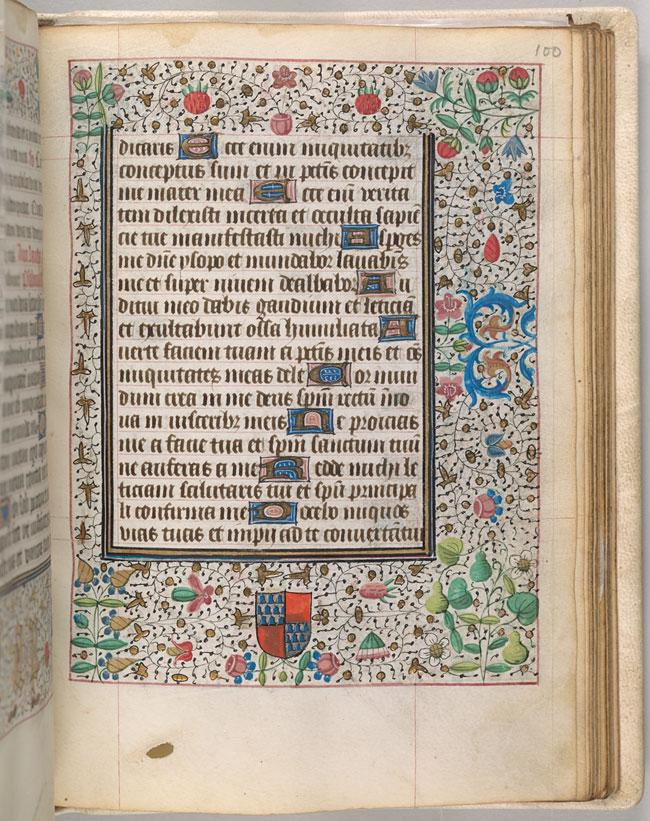 100
dicaris Ecce enim iniquitatibꝫ
conceptus sum et in pctīs concepit
me mater mea Ecce enī verita
tem dilexisti incerta et occulta sapiē
cie tue manifestasti michi Aspges
me dn̄e ysopo et mundabor lauabis
me et super niuem dealbabor Au
ditui meo dabis gaudium et leticiā
et exultabunt ossa humiliata A
uerte faciem tuam a pctīs meis et oēs
iniquitates meas dele Cor mun
dum crea in me deus spm̄ rectū inno
ua in uisceribꝫ meis Ne proicias
me a facie tua et spm̄ sanctum tuū
ne auferas a me Redde michi le
ticiam salutaris tui et spū principa
li confirma me Docebo iniquos
vias tuas et impij ad te conuertātur